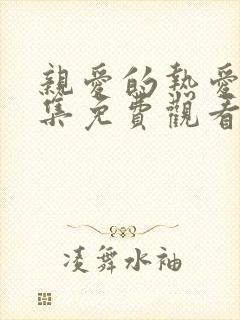 親愛的熱愛
集免費觀看
凌舞水袖